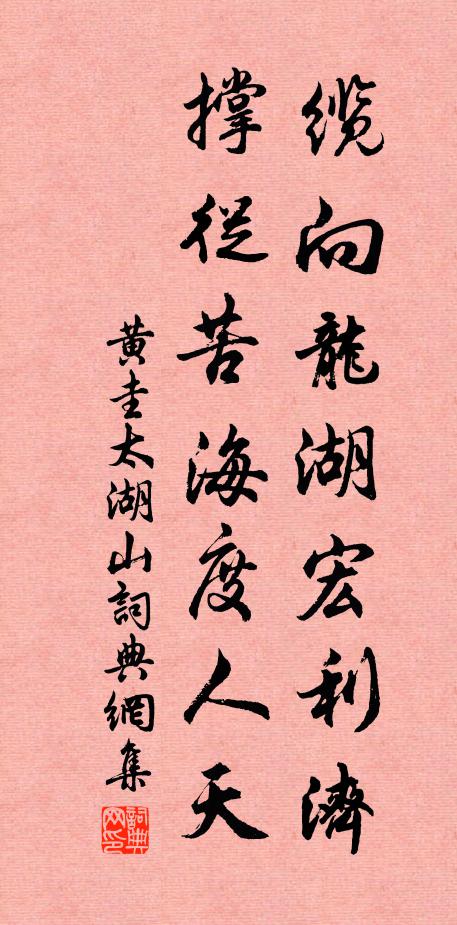 缆向龍湖宏利濟
撑從苦海度人天
黄圭太湖山詞典網集
詞典网印